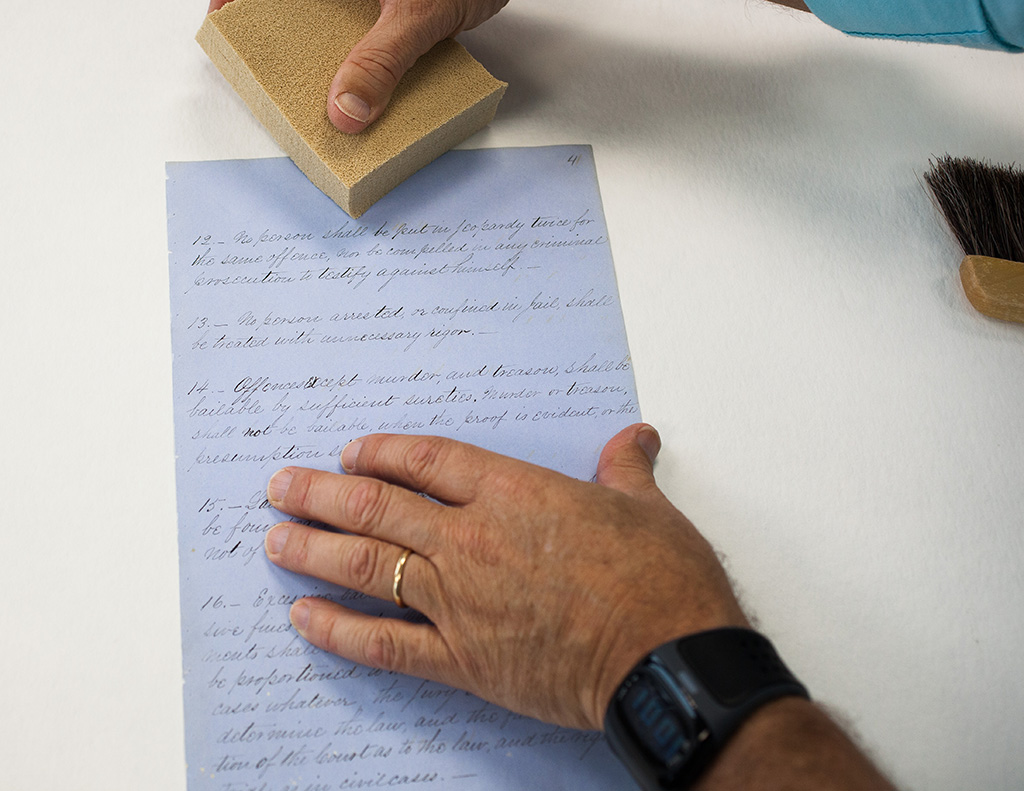 4
12.– No person shall be put in jeopardy twice for
the same offence, nor be compelled in any criminal
prosecution to testify against himself.–
13.– No person arrested, or confined in jail, shall
be treated with unnecessary rigor.–
14.– Offences except murder, and treason, shall be
bailable by sufficient sureties. Murder or treason,
shall not be bailable, when the proof is evident, or the
presumption
15.–
be
not of
16.– Excessive
sive fines
ments shall
be proportioned
cases whatever, the jury
determine the law, and the
tion of the Court as to the law, and the
as in civil cases.–